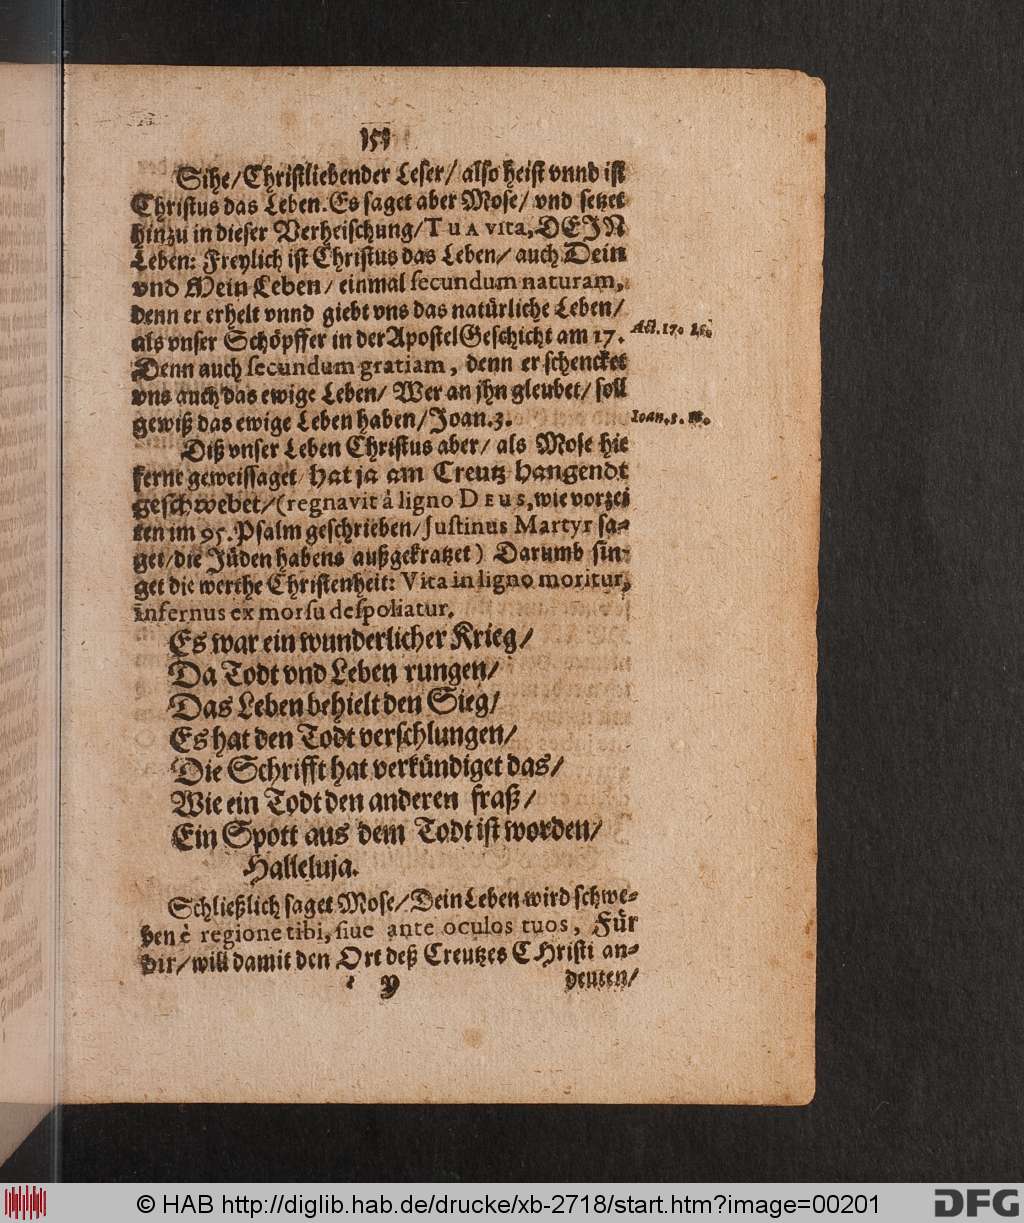 151
Sihe/Christliebender Leser/ also heist vnnd ist
Christus das Leben. Es saget aber Mose/ vnd setzet
hinzu in dieser Verheischung/TUA vita, DEJN
Leben: Freylich ist Christus das Leben/ auch Dein
vnd Mein Leben/ einmal secundum naturam,
denn er erhelt vnnd giebt vns das natürliche Leben/
als vnser Schöpffer in der ApostelGeschicht am 17. Act. 17.
Denn auch secundum gratiam, denn er schencket
vns auch das ewige Leben/ Wer an jhn gleubet/ soll
gewiß das ewige Leben haben/ Joan. 3. Ioan. 3.
Diß vnser Leben Christus aber/ als Mose hie
ferne geweissaget/ hat ja am Creutz hangendt
geschwebet/(regnavit à ligno DEUS, wie vorzei
ten im 95. Psalm geschrieben/ Justinus Martyr sa-
get/die Jüden habens außgekratzet) Darumb sin-
get die werthe Christenheit: Vita in ligno moritur,
infernus ex morsu despoliatur.
Es war ein wunderlicher Krieg/
Da Todt vnd Leben rungen/
Das Leben behielt den Sieg/
Es hat den Todt verschlungen/
Die Schrifft hat verkündiget das/
Wie ein Todt den anderen fraß/
Ein Spott aus dem Todt ist worden/
Halleluja.
Schließlich saget Mose/ Dein Leben wird schwe-
ben è regione tibi, siue ante oculos tuos, Für
dir/ will damit den Ort deß Creutzes CHristi an-
y deuten/
© HAB http://diglib.hab.de/drucke/xb-2718/start.htm?image=00201 DFG